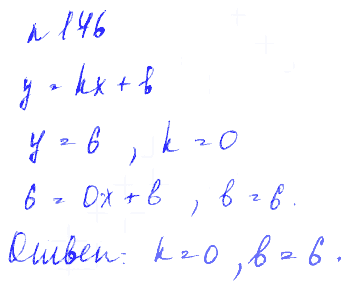 n 146
y = kx + b
y = 6 , k = 0
6 = 0x + b , b = 6.
Ответ: k = 0 , b = 6.